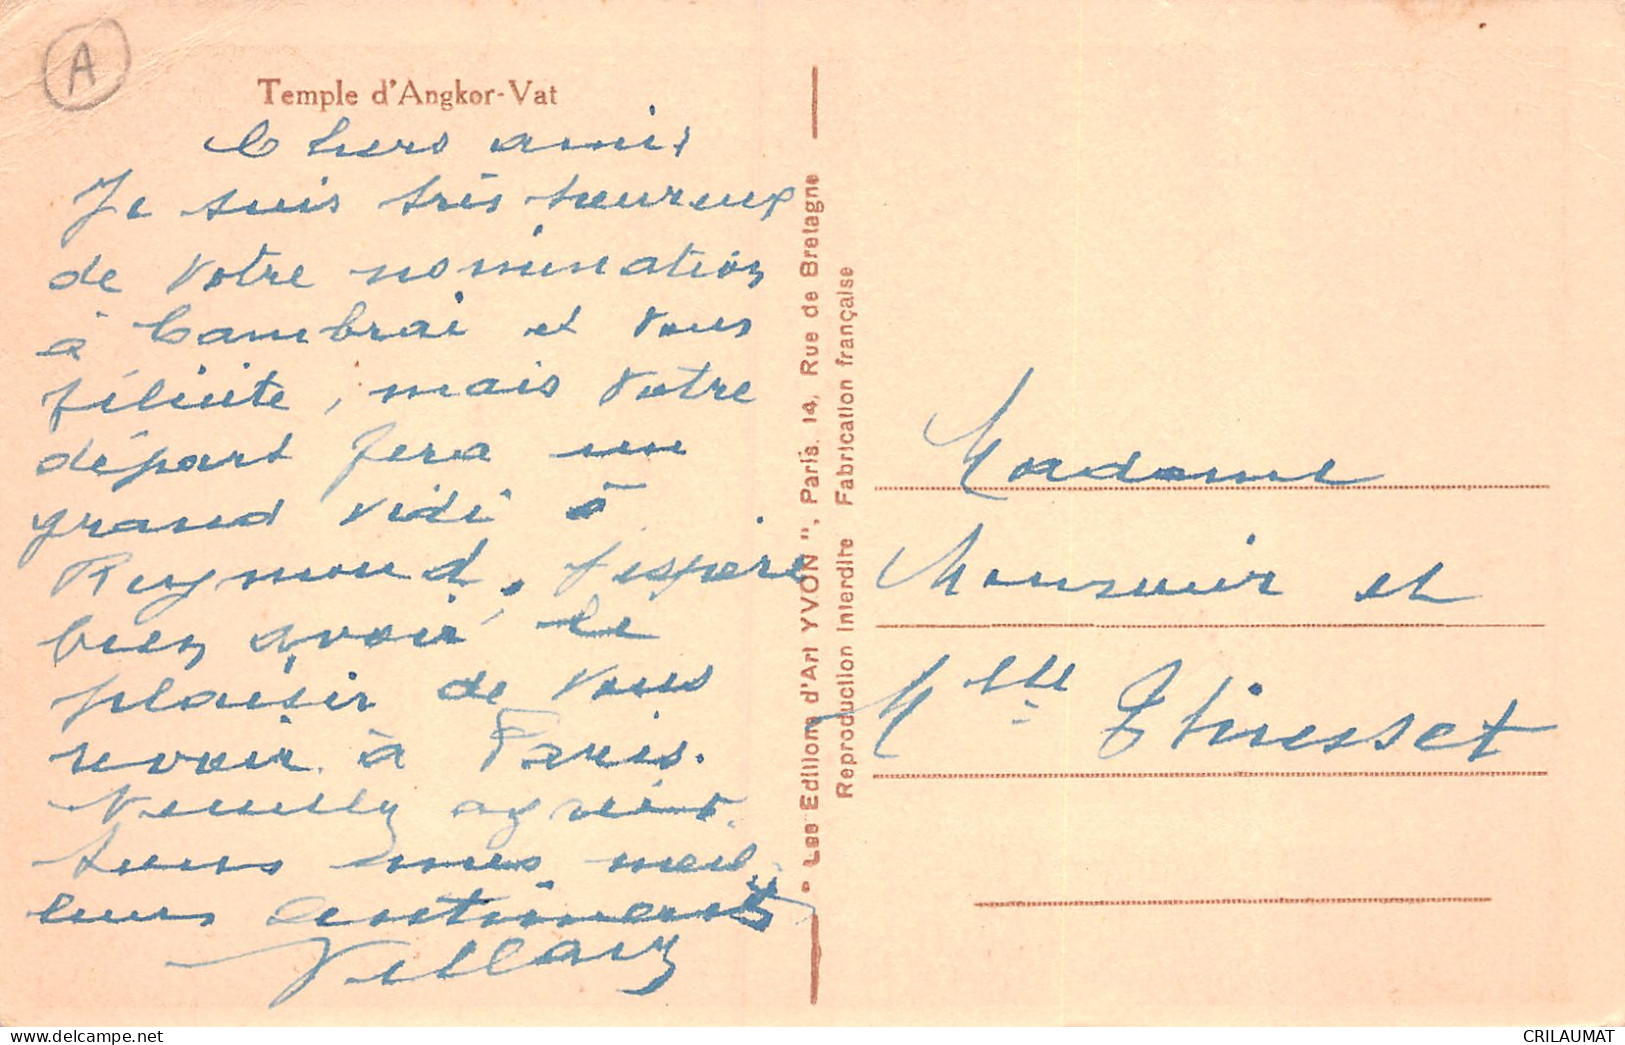 A
Temple d'Angkor-Vat
Chers amis
Je suis très heureux
de votre nomination
à Cambrai et vous
félicite, mais votre
départ fera un
grand vide à
Raymond, j'espère
bien avoir le
plaisir de vous
revoir à Paris.
Veuillez agréer
tous mes meil
leurs sentiments
" Les Editions d'Art YVON ", Paris. 14, Rue de Bretagne
Reproduction Interdite Fabrication française
Madame
Monsieur et
Mlle
CRILAUMAT
www.delcampe.net